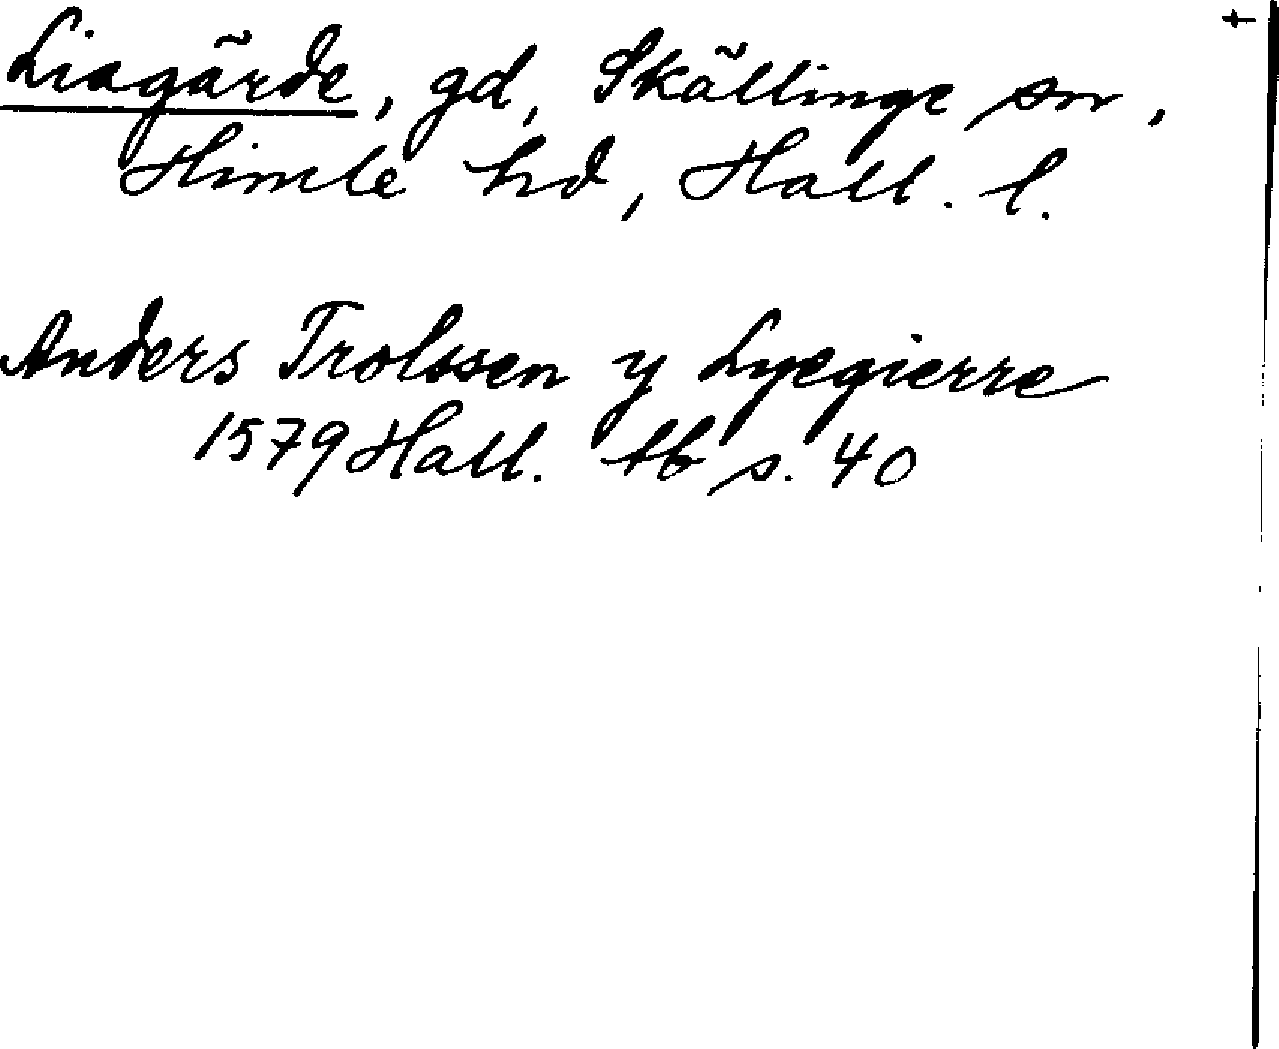 Liagärde, gd, Skällinge sn,
Himle hd, Hall. l.
Anders Trolssen y Lyegierre
1579 Hall. tb s. 40